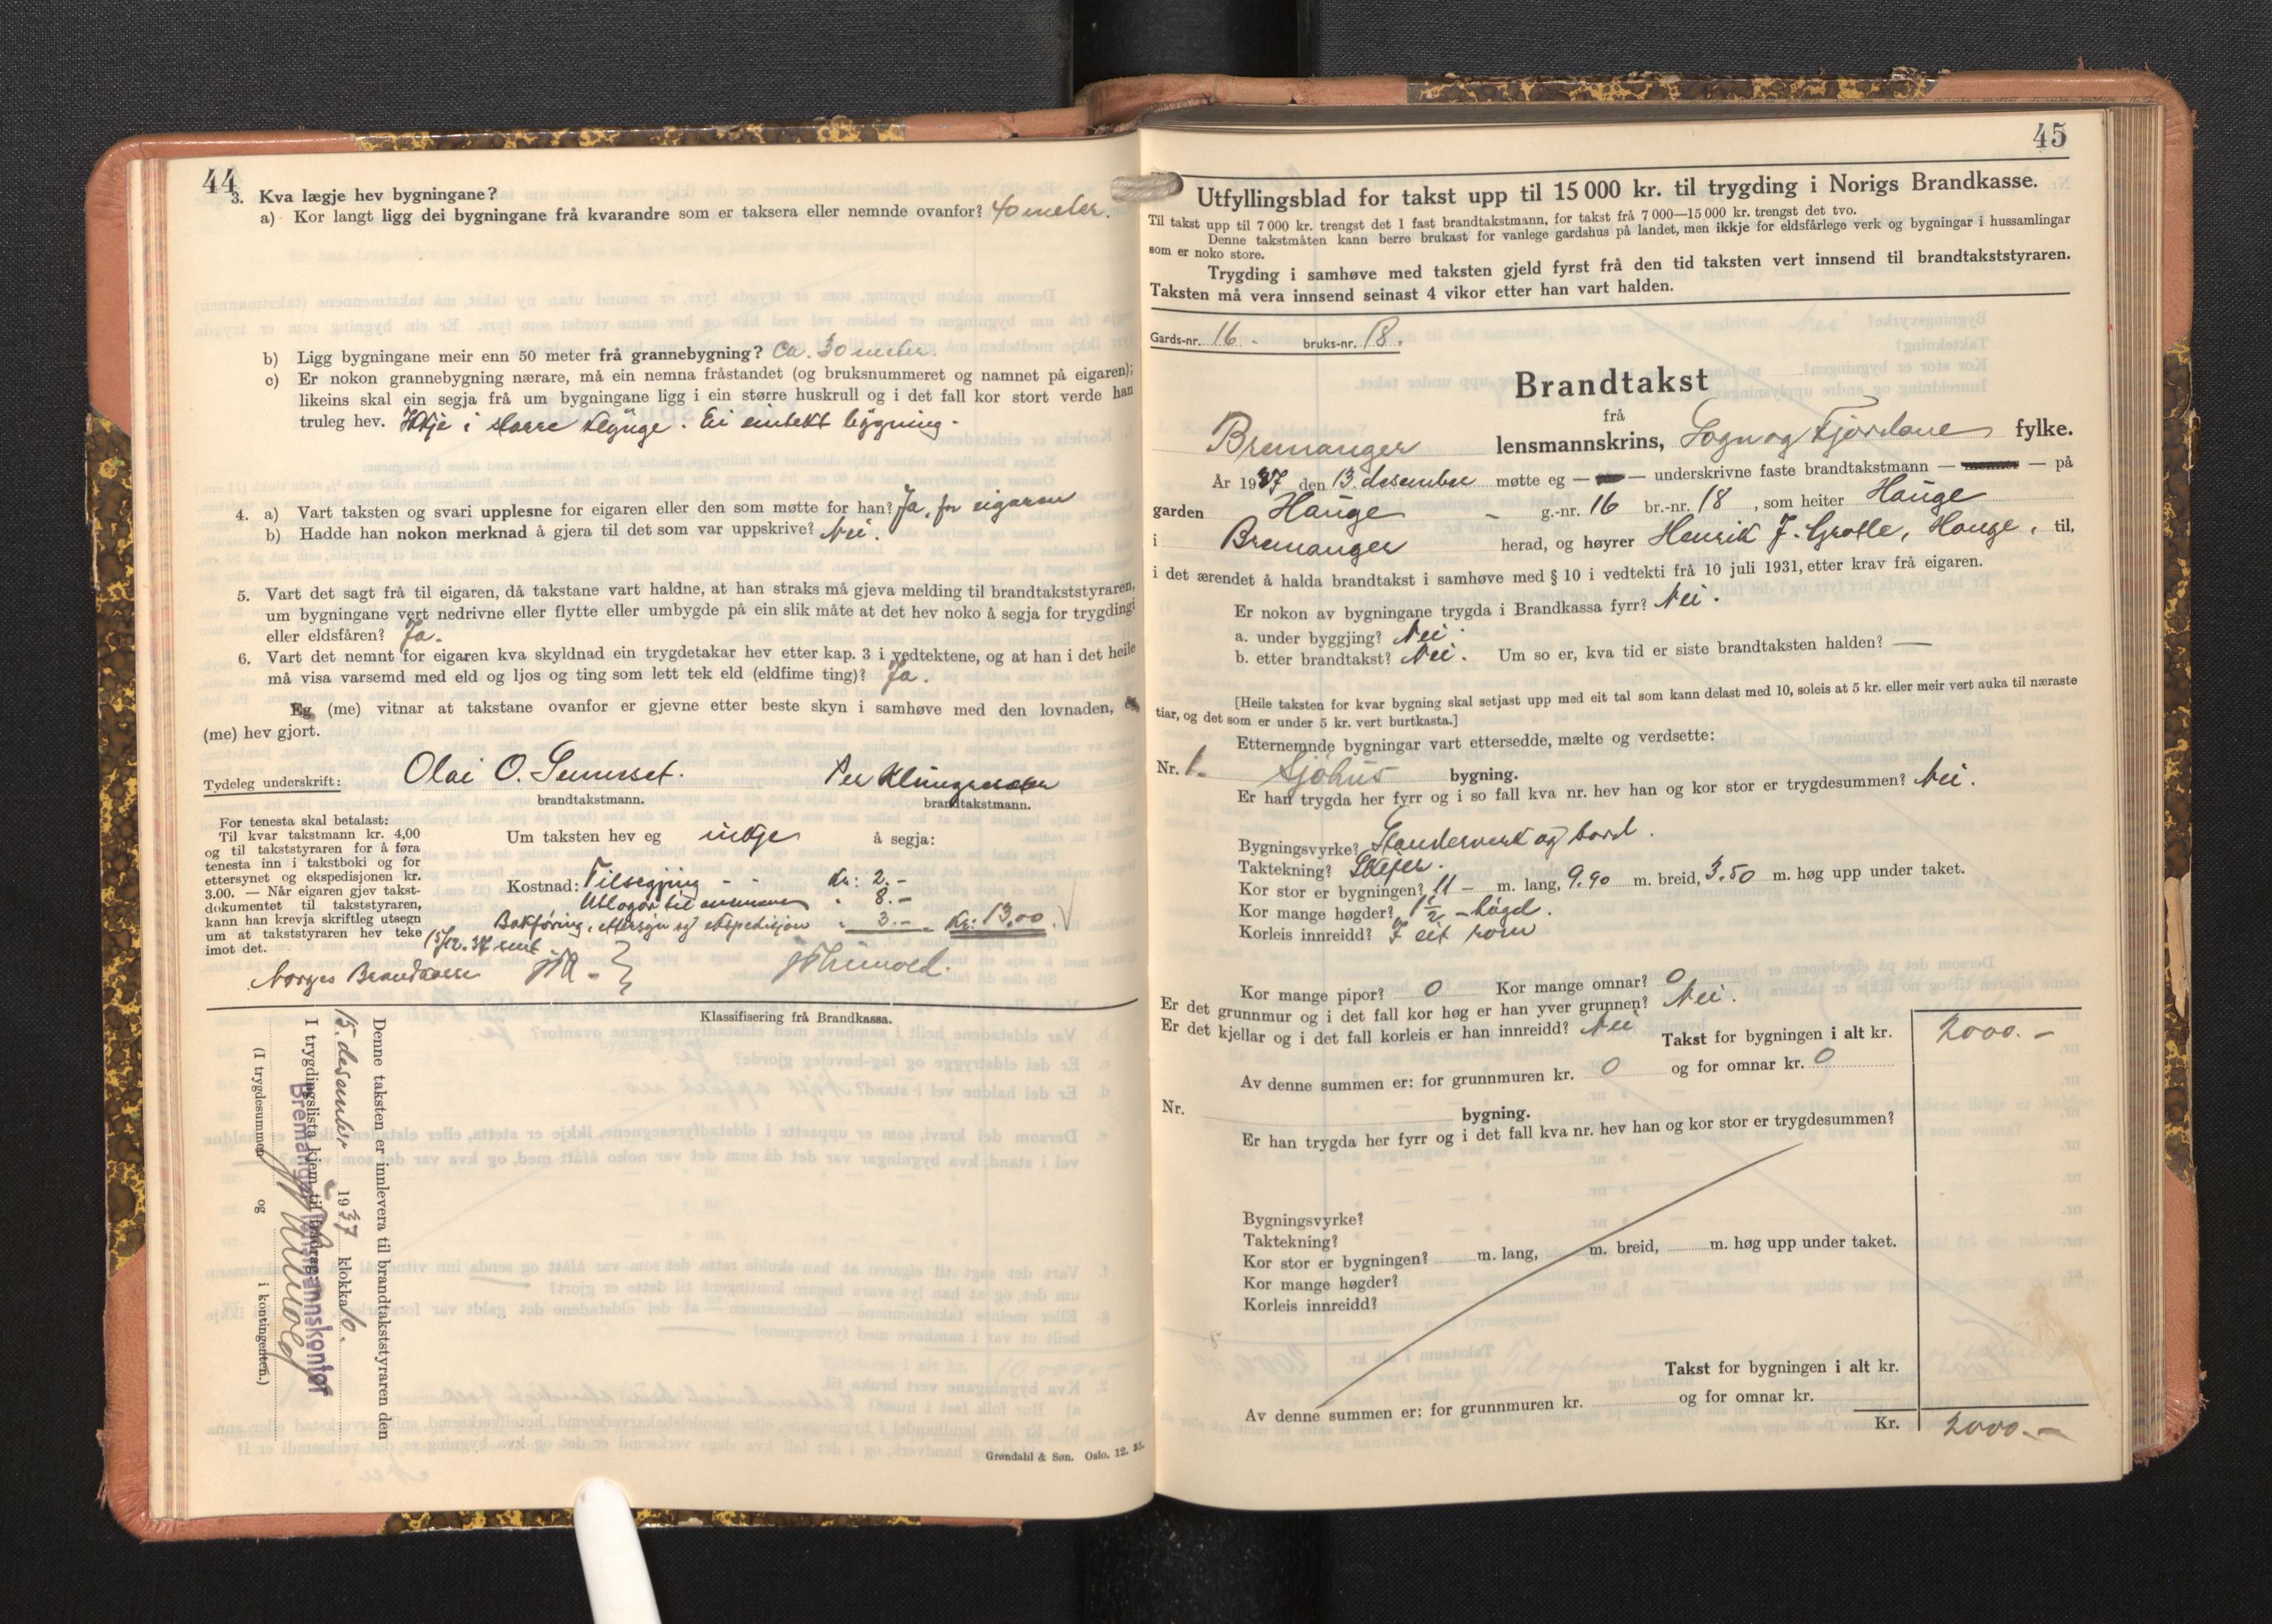 44
3. Kva lægje hev bygningane?
a) Kor langt ligg dei bygningane frå kvarandre som er taksera eller nemnde ovanfor? 40 meter.
b) Ligg bygningane meir enn 50 meter frå grannebygning? Ca. 30 meter.
c) Er nokon grannebygning nærare, må ein nemna fråstandet (og bruksnummeret og namnet på eigaren);
likeins skal ein segja frå um bygningane ligg i ein større huskrull og i det fall kor stort verde han
truleg hev. Ikkje i større klynge. Ei enkelt bygning.
4. a) Vart taksten og svari upplesne for eigaren eller den som møtte for han? Ja, for eigaren
b) Hadde han nokon merknad å gjera til det som var uppskrive? Nei.
5. Vart det sagt frå til eigaren, då takstane vart haldne, at han straks må gjeva melding til brandtakststyraren,
um bygningane vert nedrivne eller flytte eller umbygde på ein slik måte at det hev noko å segja for trygdingi
eller eldsfåren? Ja.
6. Vart det nemnt for eigaren kva skyldnad ein trygdetakar hev etter kap. 3 i vedtektene, og at han i det heile
må visa varsemd med eld og ljos og ting som lett tek eld (eldfime ting)? Ja.
Eg (me) vitnar at takstane ovanfor er gjevne etter beste skyn i samhøve med den lovnaden, eg
(me) hev gjort.
Tydeleg underskrift: Olai O. Per
brandtakstmann. brandtakstmann.
For tenesta skal betalast:
Til kvar takstmann kr. 4,00
og til takststyraren for å føra
tenesta inn i takstboki og for
ettersynet og ekspedisjonen kr.
3.00. — Når eigaren gjev takst-
dokumentet til takststyraren,
kann han krevja skriftleg utsegn
um at takststyraren hev teke
imot det.
Um taksten hev eg inkje å segja:
Kostnad: Tilsegjing - - Kr: 2.-
" 8.-
Bokføring, ettersyn og ekspedisjon " 3.- Kr: 13.00
15/12.37 sendt
Norges Brandkasse
Klassifisering frå Brandkassa.
Denne taksten er innlevera til brandtakststyraren den
15. desember 1937 klokka 10.
I trygdingslista kjem til
Bremanger lensmannskontor
(I trygdesummen og i kontingenten.)
Grøndahl & Søn. Oslo. 12. 35.
45
Utfyllingsblad for takst upp til 15 000 kr. til trygding i Norigs Brandkasse.
Til takst upp til 7 000 kr. trengst det 1 fast brandtakstmann, for takst frå 7 000—15 000 kr. trengst det tvo.
Denne takstmåten kann berre brukast for vanlege gardshus på landet, men ikkje for eldsfårlege verk og bygningar i hussamlingar
som er noko store.
Trygding i samhøve med taksten gjeld fyrst frå den tid taksten vert innsend til brandtakststyraren.
Taksten må vera innsend seinast 4 vikor etter han vart halden.
Gards-nr. 16. bruks-nr. 18.
Brandtakst
frå
Bremanger lensmannskrins, Sogn og Fjordane fylke.
År 1937 den 13. desember møtte eg — — underskrivne faste brandtakstmann — menner — på
garden Hauge - g.-nr. 16 br.-nr. 18, som heiter Hauge
i Bremanger herad, og høyrer Henrik J. Grotle, Hauge, til,
i det ærendet å halda brandtakst i samhøve med § 10 i vedtekti frå 10 juli 1931, etter krav frå eigaren.
Er nokon av bygningane trygda i Brandkassa fyrr? Nei.
a. under byggjing? Nei.
b. etter brandtakst? Nei. Um so er, kva tid er siste brandtaksten halden? —
[Heile taksten for kvar bygning skal setjast upp med eit tal som kann delast med 10, soleis at 5 kr. eller meir vert auka til næraste
tiar, og det som er under 5 kr. vert burtkasta.]
Etternemnde bygningar vart ettersedde, mælte og verdsette:
Nr. 1. Sjøhus bygning.
Er han trygda her fyrr og i so fall kva nr. hev han og kor stor er trygdesummen? Nei.
Bygningsvyrke? Standerverk og bord.
Taktekning? Skifer.
Kor stor er bygningen? 11 - m. lang, 9.90 m. breid, 3.50 m. høg upp under taket.
Kor mange høgder? 1 1/2 - høgd.
Korleis innreidd? I eit rom
Kor mange pipor? 0 Kor mange omnar? 0
Er det grunnmur og i det fall kor høg er han yver grunnen? Nei.
Er det kjellar og i det fall korleis er han innreidd? Nei
Takst for bygningen i alt kr. 2000.-
Av denne summen er: for grunnmuren kr. 0 og for omnar kr. 0
Nr. bygning.
Er han trygda her fyrr og i det fall kva nr. hev han og kor stor er trygdesummen?
Bygningsvyrke?
Taktekning?
Kor stor er bygningen? m. lang, m. breid, m. høg upp under taket.
Kor mange høgder?
Korleis innreidd?
Takst for bygningen i alt kr.
Av denne summen er: for grunnmuren kr. og for omnar kr.
Kr. 2000.-